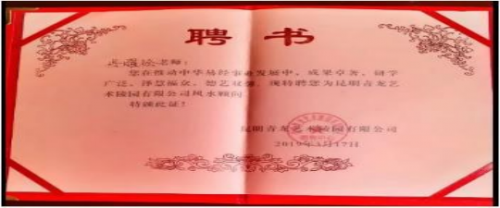 聘书
老师：
您在推动中华易经事业发展中，成果卓著，研学
广泛、泽慧福众、德艺双馨，现特聘您为昆明青龙艺
术陵园有限公司风水顾问
特颁此证！
昆明青龙艺术陵园有限公司
2019年3月17日